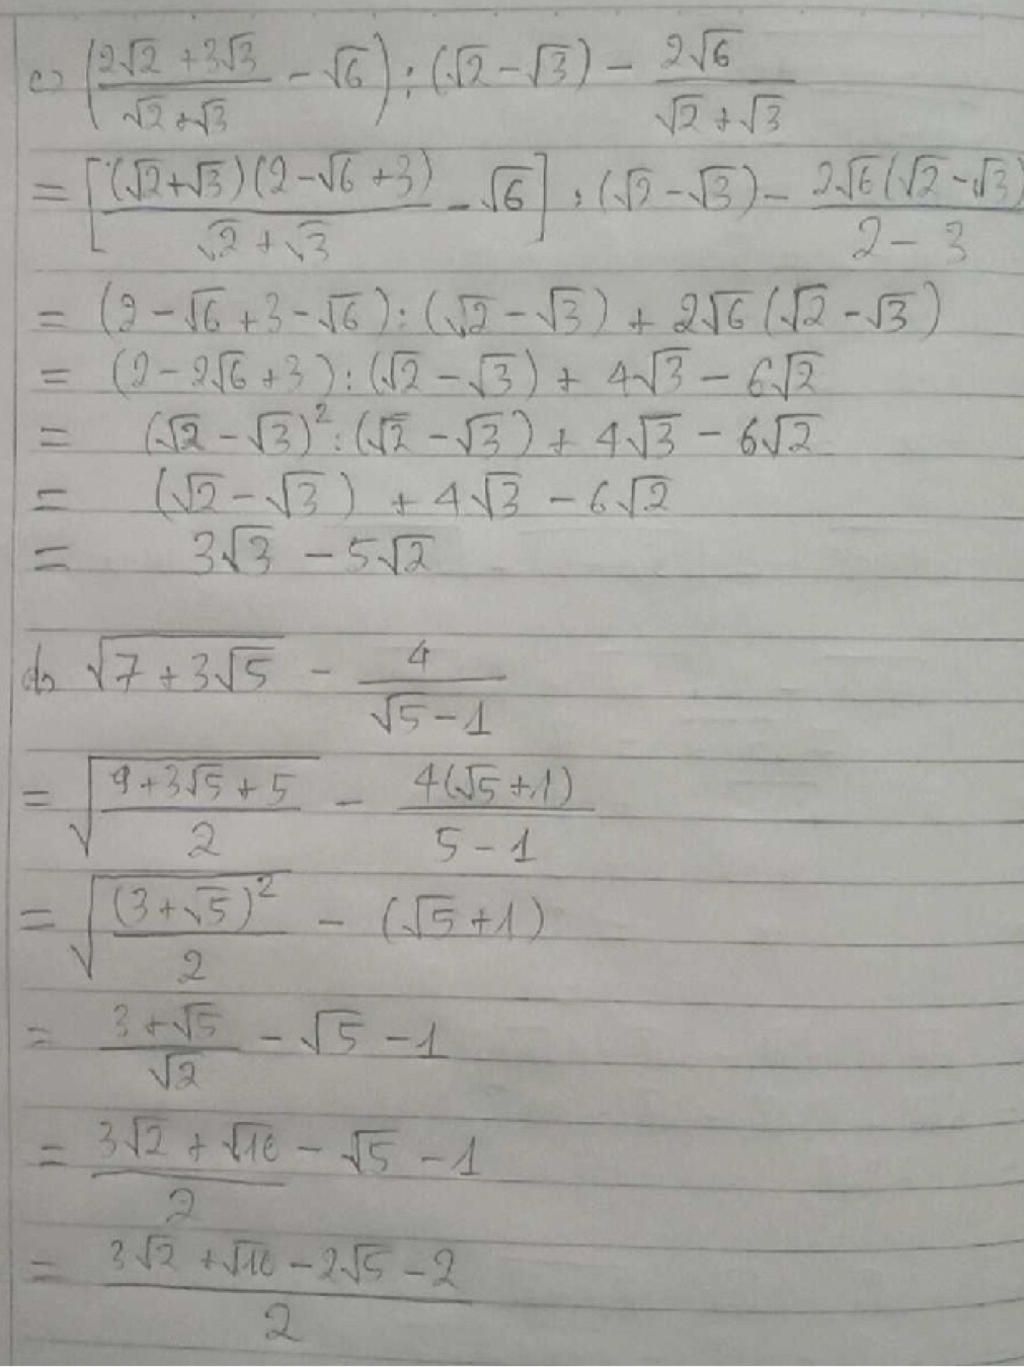 c) ((2√2 + 3√3)/(√2 + √3) - √6) : (√2 - √3) - 2√6/(√2 + √3)
= [(√2 + √3)(2 - √6 + 3)/(√2 + √3) - √6] : (√2 - √3) - 2√6(√2 - √3)/(2 - 3)
= (2 - √6 + 3 - √6) : (√2 - √3) + 2√6(√2 - √3)
= (2 - 2√6 + 3) : (√2 - √3) + 4√3 - 6√2
= (√2 - √3)² : (√2 - √3) + 4√3 - 6√2
= (√2 - √3) + 4√3 - 6√2
= 3√3 - 5√2
d) √(7 + 3√5) - 4/(√5 - 1)
= √((9 + 3√5 + 5)/2) - 4(√5 + 1)/(5 - 1)
= √((3 + √5)²/2) - (√5 + 1)
= (3 + √5)/√2 - √5 - 1
= (3√2 + √10)/2 - √5 - 1
= (3√2 + √10 - 2√5 - 2)/2